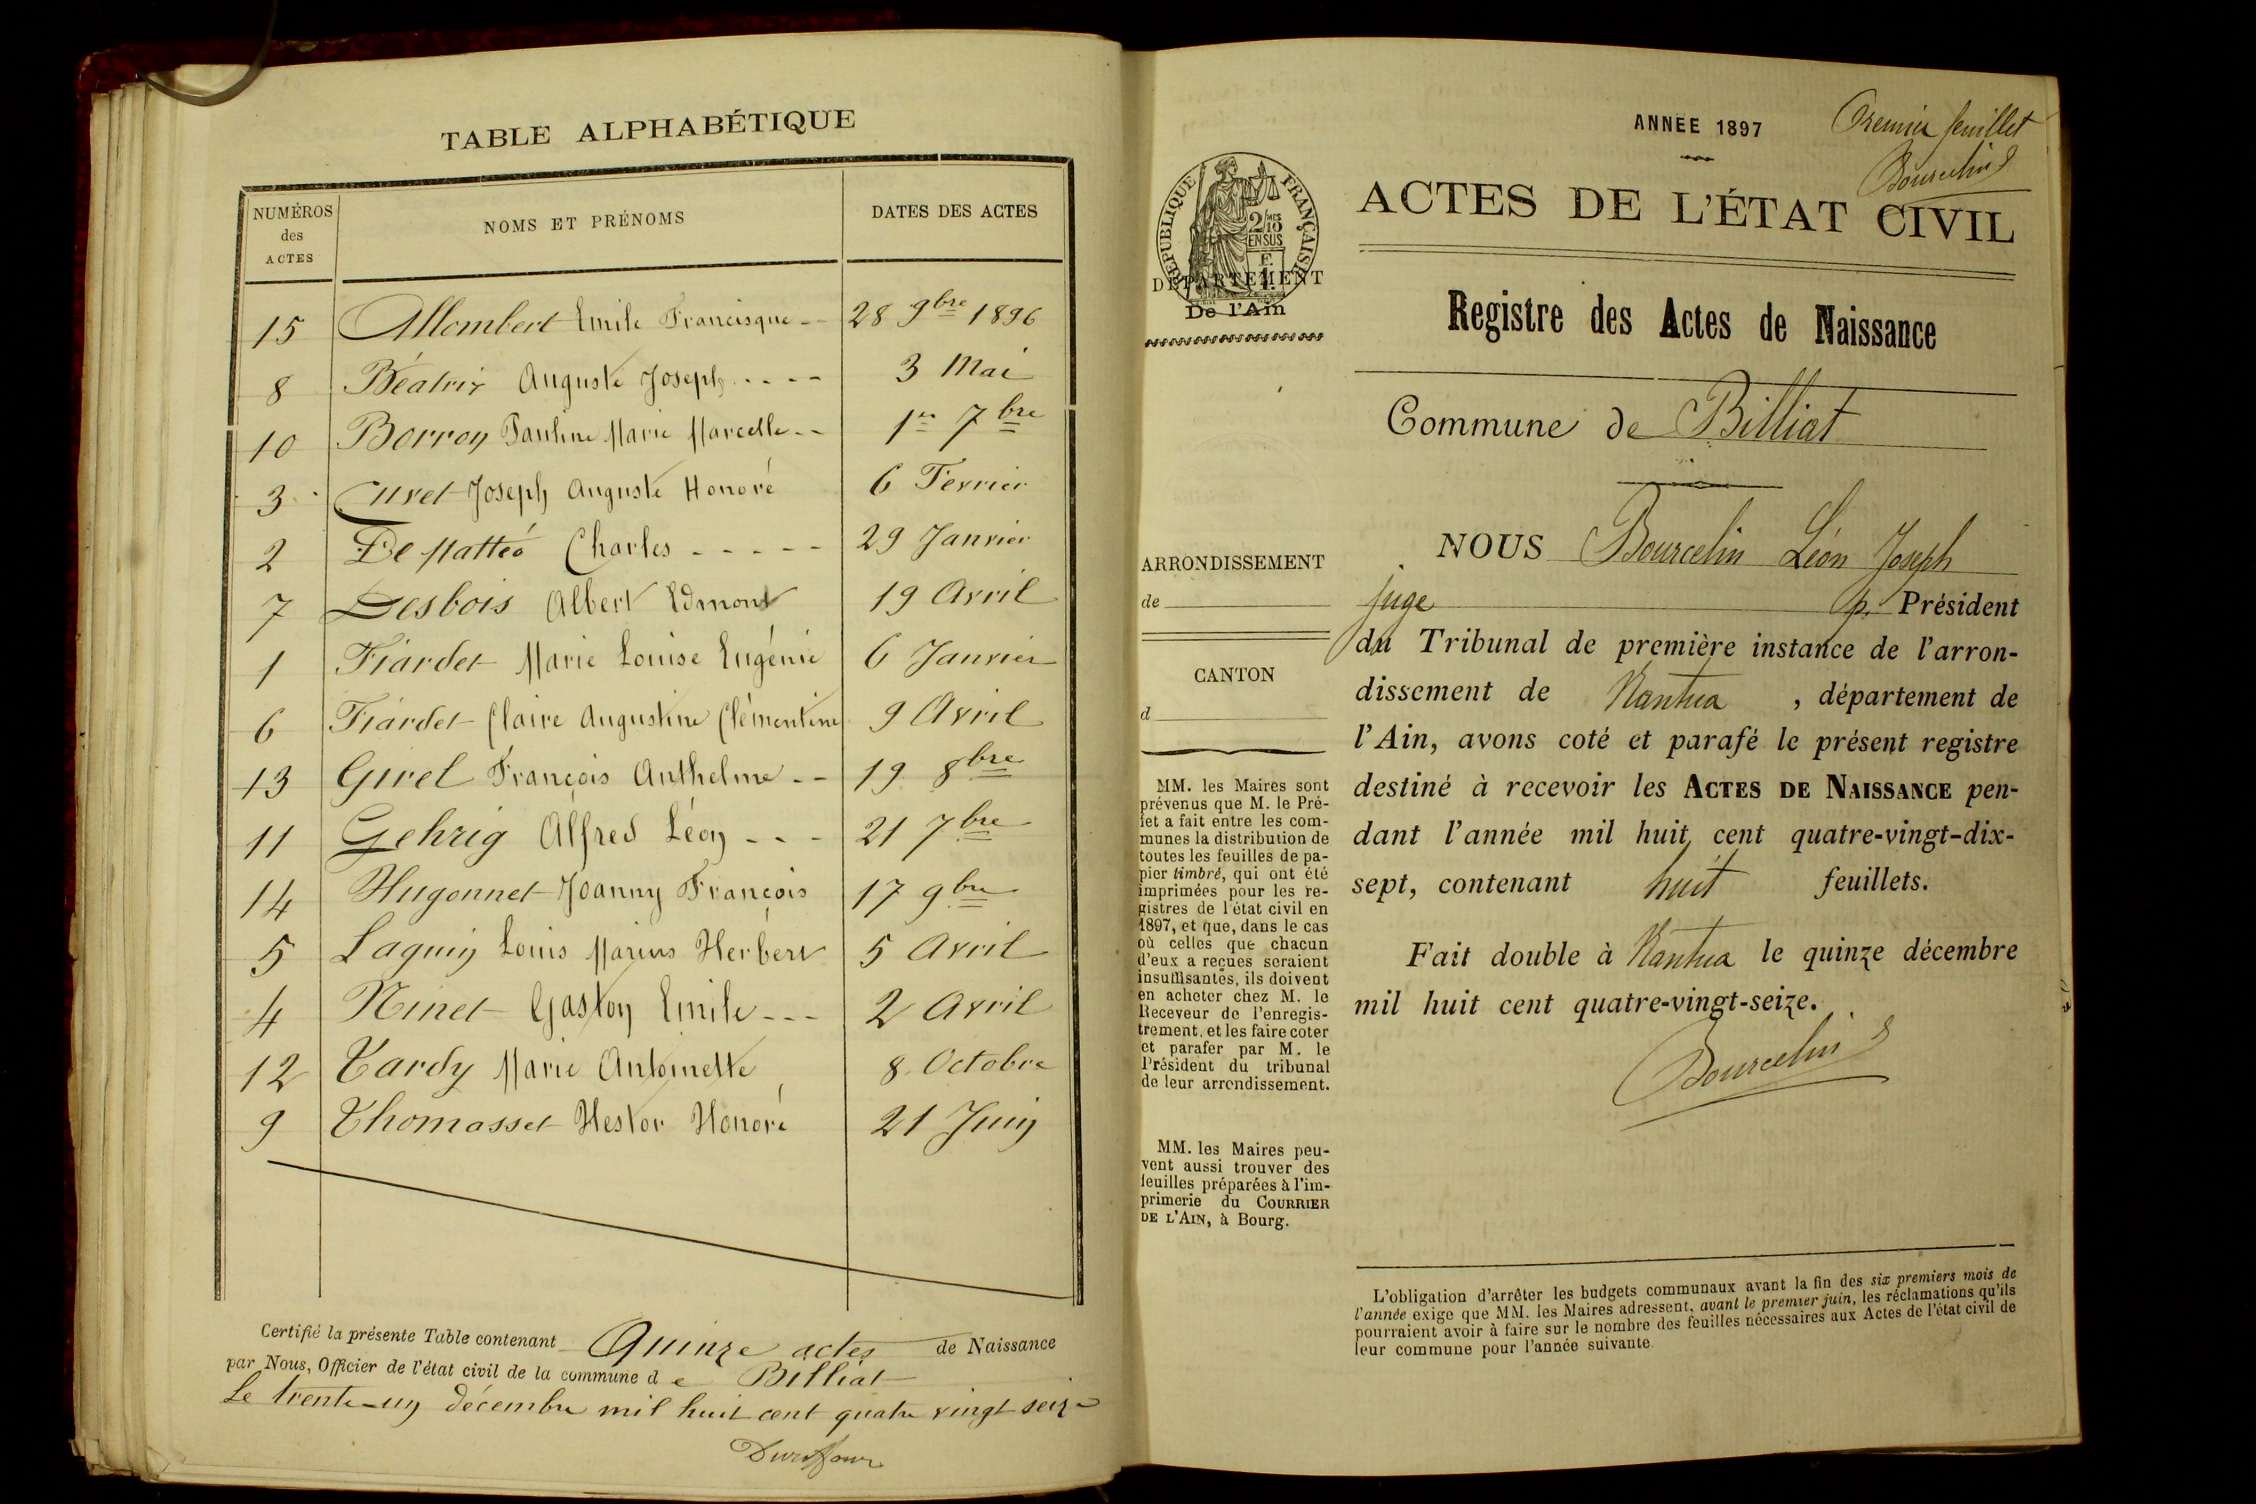 TABLE ALPHABÉTIQUE
NUMÉROS
des
ACTES
NOMS ET PRÉNOMS
DATES DES ACTES
15 Allombert Emile Francisque -- 28 9bre 1896
8 Béatrix Auguste Joseph ---- 3 Mai
10 Borron Pauline Marie Marcelle -- 1er 7bre
3 Curet Joseph Auguste Honoré 6 Fevrier
2 De Mattéo Charles ----- 29 Janvier
7 Desbois Albert Edmont 19 Avril
1 Fiardet Marie Louise Eugénie 6 Janvier
6 Fiardet Claire Augustine Clémentine 9 Avril
13 Girel François Anthelme -- 19 8bre
11 Gehrig Alfred Léon --- 21 7bre
14 Hugonnet Joanny François 17 9bre
5 Laguin Louis Marius Herbert 5 Avril
4 Ninet Gaston Emile --- 2 Avril
12 Tardy Marie Antoinette 8 Octobre
9 Thomasset Hestor Honoré 21 Juin
Certifié la présente Table contenant Quinze actes de Naissance
par Nous, Officier de l'état civil de la commune de Billiat
Le trente-un décembre mil huit cent quatre vingt seize
ANNÉE 1897
Premier feuillet
Bourcelin
RÉPUBLIQUE FRANÇAISE
2/10mes
EN SUS
DÉPARTEMENT
De l'Ain
ACTES DE L'ÉTAT CIVIL
Registre des Actes de Naissance
Commune de Billiat
ARRONDISSEMENT
de
CANTON
d
MM. les Maires sont
prévenus que M. le Pré-
fet a fait entre les com-
munes la distribution de
toutes les feuilles de pa-
pier timbré, qui ont été
imprimées pour les re-
gistres de l'état civil en
1897, et que, dans le cas
où celles que chacun
d'eux a reçues seraient
insuffisantes, ils doivent
en acheter chez M. le
Receveur de l'enregis-
trement, et les faire coter
et parafer par M. le
Président du tribunal
de leur arrondissement.
MM. les Maires peu-
vent aussi trouver des
feuilles préparées à l'im-
primerie du COURRIER
DE L'AIN, à Bourg.
NOUS Bourcelin Léon Joseph
juge p. Président
du Tribunal de première instance de l'arron-
dissement de Nantua, département de
l'Ain, avons coté et parafé le présent registre
destiné à recevoir les ACTES DE NAISSANCE pen-
dant l'année mil huit cent quatre-vingt-dix-
sept, contenant huit feuillets.
Fait double à Nantua le quinze décembre
mil huit cent quatre-vingt-seize.
Bourcelin
L'obligation d'arrêter les budgets communaux avant la fin des six premiers mois de
l'année exige que MM. les Maires adressent, avant le premier juin, les réclamations qu'ils
pourraient avoir à faire sur le nombre des feuilles nécessaires aux Actes de l'état civil de
leur commune pour l'année suivante.